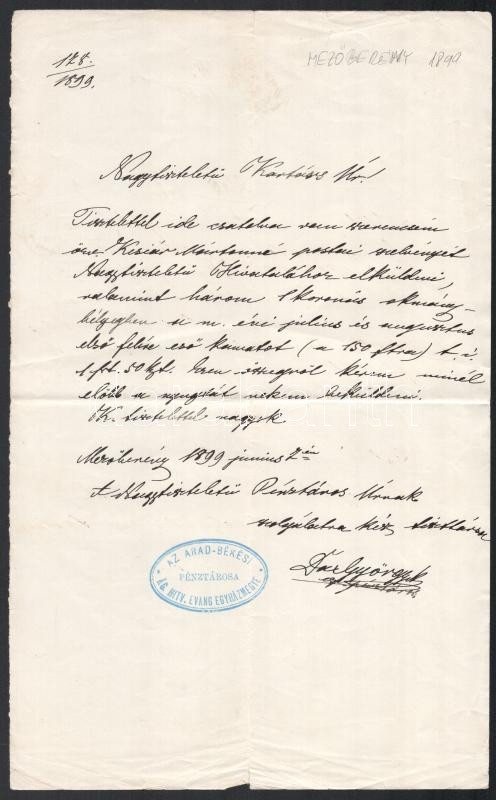 128.
1899.
MEZŐBERÉNY 1899
Nagytiszteletű Kartárs Úr!
Tisztelettel ide csatolva van szerencsém
özv. Mártonné postai
Nagytiszteletű Hivatalához elküldeni,
valamint három 1 koronás okmány-
bélyegben a m. évi július és augusztus
első felére eső kamatot (a 150 ftra) t. i.
1 ft. 50 kft. Ezen összegről kérem minél
előbb a nyugtát nekem beküldeni.
K. tisztelettel vagyok
Mezőberény 1899 június 2án
A Nagytiszteletű Pénztáros Úrnak
szolgálatra kész tiszttársa
György
AZ ARAD-BÉKÉSI
PÉNZTÁROSA
ÁG. HITV. EVANG EGYHÁZMEGYE